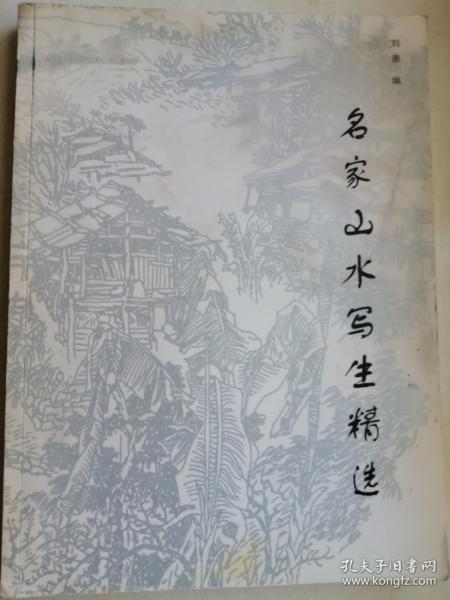 刘康 编
名家山水写生精选
孔夫子旧书网
www.kongfz.com